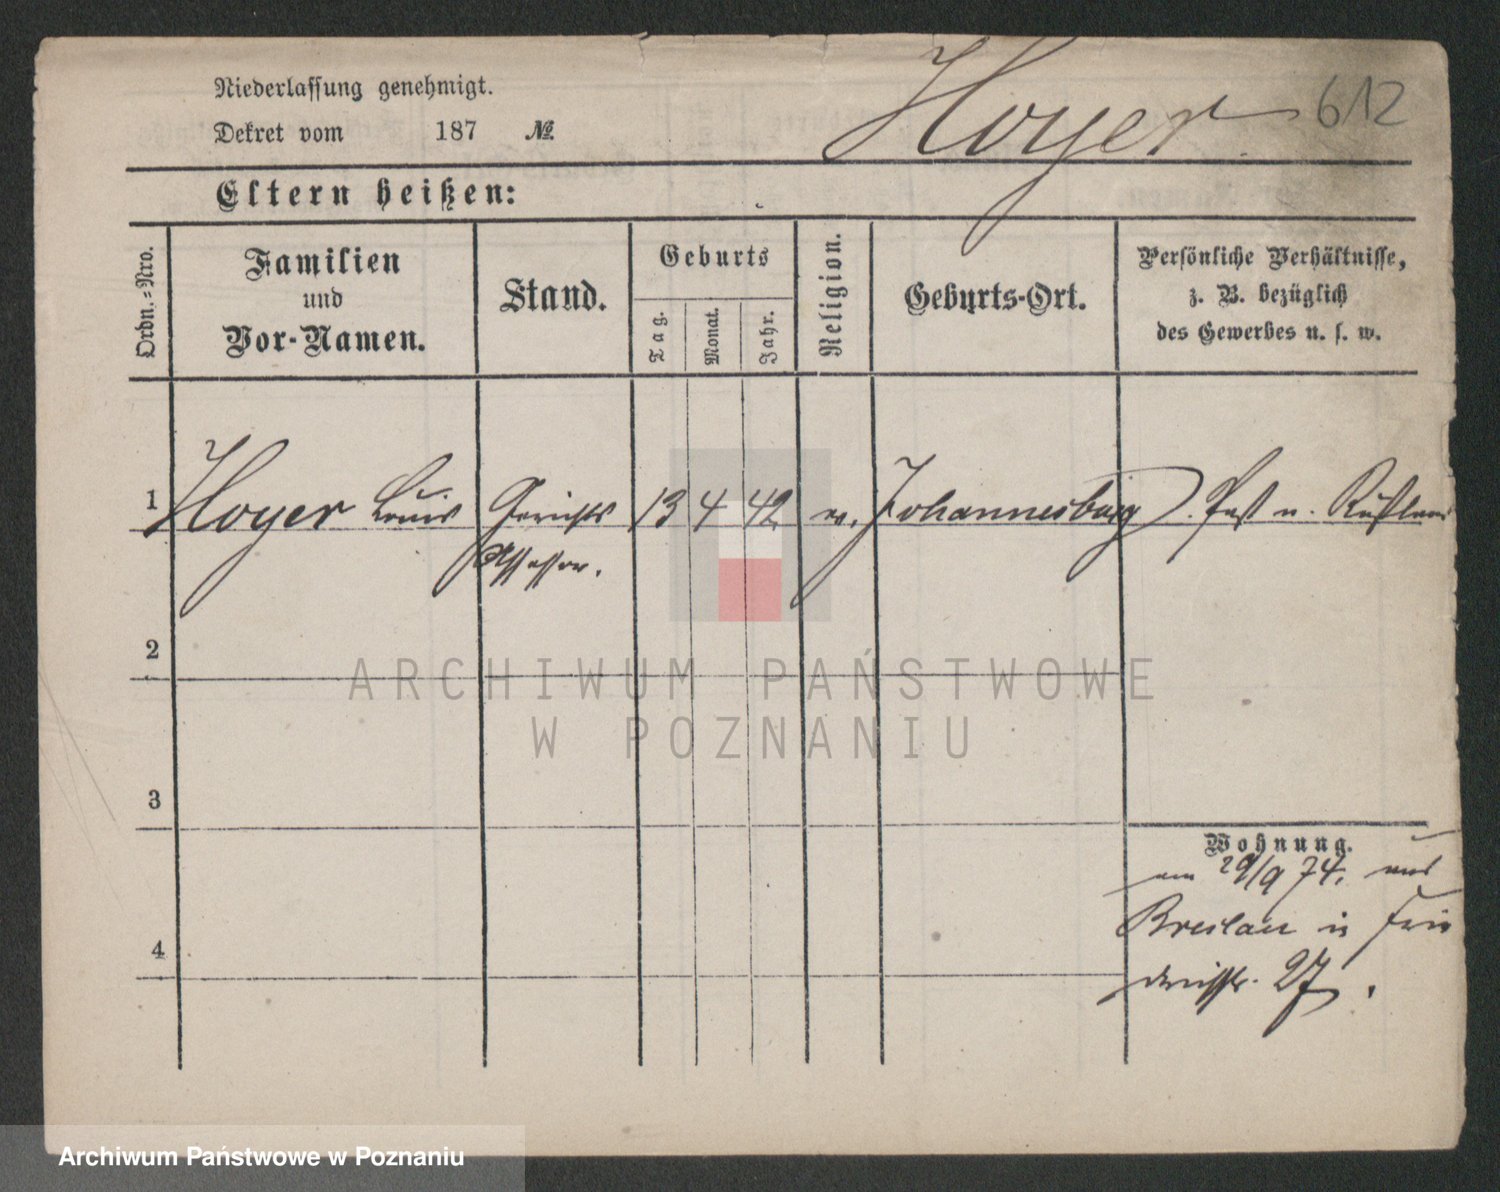 Niederlassung genehmigt.
Dekret vom 187 №.
Hoyer 612
Eltern heißen:
Ordn.-Nro.
Familien
und
Vor-Namen.
Stand.
Geburts
Tag.
Monat.
Jahr.
Religion.
Geburts-Ort.
Persönliche Verhältnisse,
z. B. bezüglich
des Gewerbes u. s. w.
1 Hoyer Louis Gerichts 13 4 42 ev. Johannesburg
Assessor.
2
3
4
Wohnung.
am 29/9 74. aus
Breslau in Frie
drichstr. 27.
ARCHIWUM PAŃSTWOWE
W POZNANIU
Archiwum Państwowe w Poznaniu